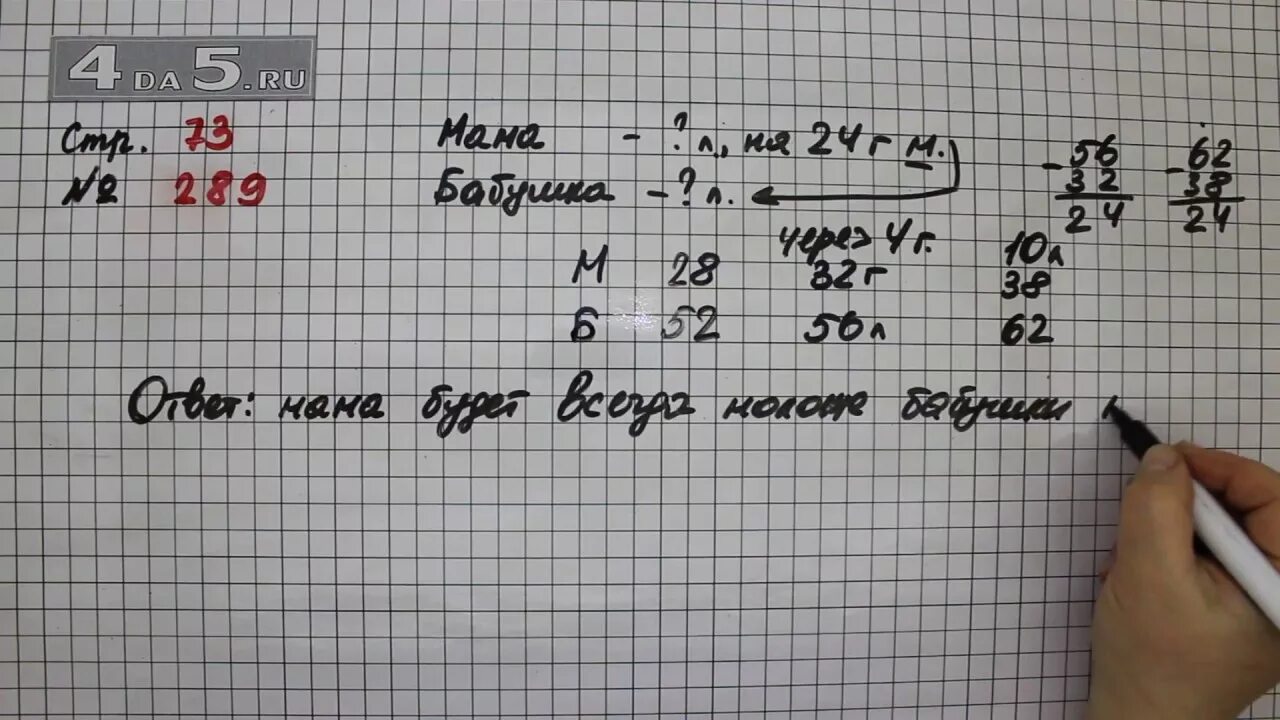 4DA5.RU
Стр. 73
№ 289
Мама - ? л., на 24 г м.
Бабушка - ? л.
- 56
32
24
- 62
38
24
через 4 г. 10 л
М 28 32 г 38
Б 52 56 л 62
Ответ: мама будет всегда моложе бабушки н